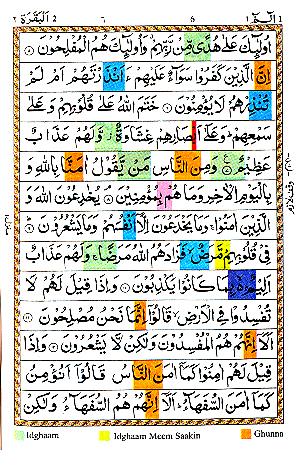 البقرة ٢ ٦ 6 الم ١
اُولٰٓئِكَ عَلٰى هُدًى مِّنْ رَّبِّهِمْ وَاُولٰٓئِكَ هُمُ الْمُفْلِحُوْنَ
اِنَّ الَّذِيْنَ كَفَرُوْا سَوَآءٌ عَلَيْهِمْ ءَاَنْذَرْتَهُمْ اَمْ لَمْ
تُنْذِرْهُمْ لَا يُؤْمِنُوْنَ خَتَمَ اللّٰهُ عَلٰى قُلُوْبِهِمْ وَعَلٰى
سَمْعِهِمْ وَعَلٰٓى اَبْصَارِهِمْ غِشَاوَةٌ وَّلَهُمْ عَذَابٌ
عَظِيْمٌ وَمِنَ النَّاسِ مَنْ يَّقُوْلُ اٰمَنَّا بِاللّٰهِ وَ
بِالْيَوْمِ الْاٰخِرِ وَمَا هُمْ بِمُؤْمِنِيْنَ يُخٰدِعُوْنَ اللّٰهَ وَ
الَّذِيْنَ اٰمَنُوْا وَمَا يَخْدَعُوْنَ اِلَّآ اَنْفُسَهُمْ وَمَا يَشْعُرُوْنَ
فِيْ قُلُوْبِهِمْ مَّرَضٌ فَزَادَهُمُ اللّٰهُ مَرَضًا وَلَهُمْ عَذَابٌ
اَلِيْمٌ بِمَا كَانُوْا يَكْذِبُوْنَ وَاِذَا قِيْلَ لَهُمْ لَا
تُفْسِدُوْا فِي الْاَرْضِ قَالُوْٓا اِنَّمَا نَحْنُ مُصْلِحُوْنَ
اَلَآ اِنَّهُمْ هُمُ الْمُفْسِدُوْنَ وَلٰكِنْ لَّا يَشْعُرُوْنَ وَاِذَا
قِيْلَ لَهُمْ اٰمِنُوْا كَمَآ اٰمَنَ النَّاسُ قَالُوْٓا اَنُؤْمِنُ
كَمَآ اٰمَنَ السُّفَهَآءُ اَلَآ اِنَّهُمْ هُمُ السُّفَهَآءُ وَلٰكِنْ
Idghaam Idghaam Meem Saakin Ghunna